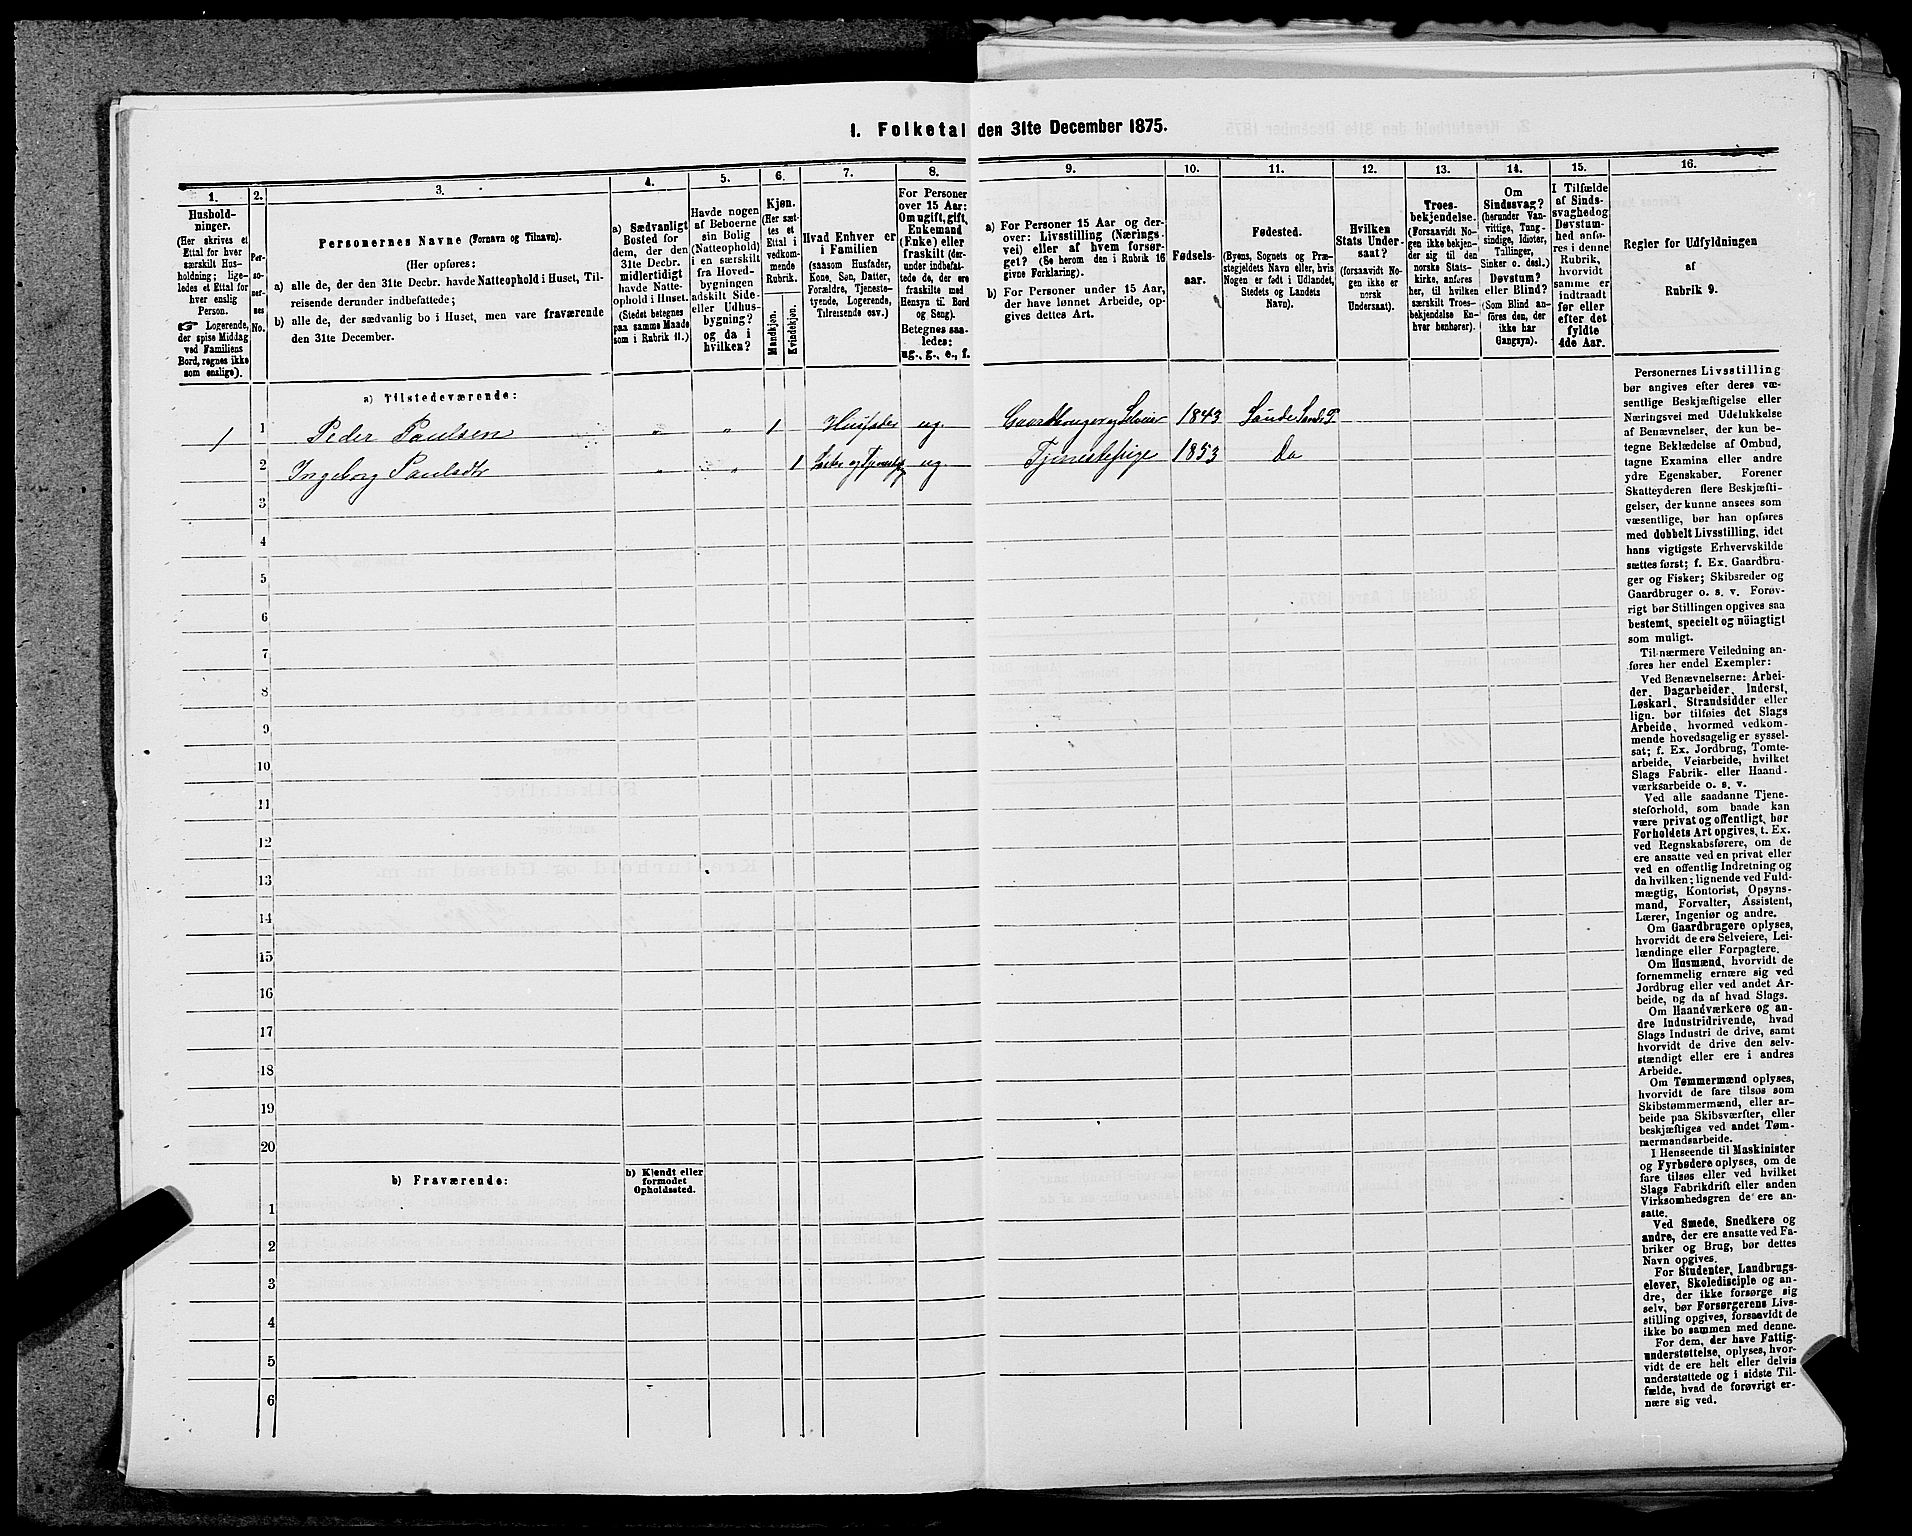 1. Folketal den 31te December 1875.
1.
2.
3.
4.
5.
6.
7.
8.
9.
10.
11.
12.
13.
14.
15.
16.
Hushold-
ninger.
(Her skrives et
Ettal for hver
særskilt Hus-
holdning; lige-
ledes et Ettal for
hver enslig
Person.
☞ Logerende,
der spise Middag
ved Familiens
Bord, regnes ikke
som enslige).
Per-
so-
ner-
nes
No.
Personernes Navne (Fornavn og Tilnavn).
(Her opføres:
a) alle de, der den 31te Decbr. havde Natteophold i Huset, Til-
reisende derunder indbefattede;
b) alle de, der sædvanlig bo i Huset, men vare fraværende
den 31te December.
a) Sædvanligt
Bosted for
dem, der den
31te Decbr.
midlertidigt
havde Natte-
ophold i Huset.
(Stedet betegnes
paa samme Maade
som i Rubrik 11.)
Havde nogen
af Beboerne
sin Bolig
(Natteophold)
i en særskilt
fra Hoved-
bygningen
adskilt Side-
eller Udhus-
bygning?
og da i
hvilken?
Kjøn.
(Her sæt-
tes et
Ettal i
vedkom-
mende
Rubrik.
Mandkjøn.
Kvindekjøn.
Hvad Enhver er
i Familien
(saasom Husfader,
Kone, Søn, Datter,
Forældre, Tjeneste-
tyende, Logerende,
Tilreisende osv.)
For Personer
over 15 Aar:
Om ugift, gift,
Enkemand
(Enke) eller
fraskilt (der-
under indbefat-
tede de, der ere
fraskilte med
Hensyn til Bord
og Seng).
Betegnes saa-
ledes:
ug., g., e., f.
a) For Personer 15 Aar og der-
over: Livsstilling (Nærings
vei) eller af hvem forsør-
get? (Se herom den i Rubrik 16
givne Forklaring).
b) For Personer under 15 Aar,
der have lønnet Arbeide, op-
gives dettes Art.
Fødsels-
aar.
Fødested.
(Byens, Sognets og Præ-
stegjeldets Navn eller, hvis
Nogen er født i Udlandet,
Stedets og Landets
Navn).
Hvilken
Stats Under-
saat?
(forsaavidt No-
gen ikke er
norsk
Undersaat).
Troes-
bekjendelse.
(Forsaavidt No-
gen ikke bekjen-
der sig til den
norske Stats-
kirke, anføres
her, til hvilken
særskilt Troes-
bekjendelse En-
hver henhører).
Om
Sindssvag?
(herunder Van-
vittige, Tung-
sindige, Idioter,
Tullinger,
Sinker o. desl.)
Døvstum?
eller Blind?
(Som Blind an-
føres den, der
ikke har
Gangsyn).
I Tilfælde
af Sinds-
svaghed og
Døvstum-
hed anfø-
res i denne
Rubrik,
hvorvidt
samme er
indtraadt
før eller
efter det
fyldte
4de Aar.
Regler for Udfyldningen
af
Rubrik 9.
a) Tilstedeværende:
1 1 Peder Paulsen „ „ 1 Husfader ug. Gaardbruger og Selveier 1843 Sande Sande P
2 Ingeborg Paulsdtr „ „ 1 ug. Tjenestepige 1853 Do
3
4
5
6
7
8
9
10
11
12
13
14
15
16
17
18
19
20
b) Fraværende:
b) Kjendt eller
formodet
Opholdssted.
1
2
3
4
5
6
Personernes Livsstilling
bør angives efter deres væ-
sentlige Beskjæftigelse eller
Næringsvei med Udelukkelse
af Benævnelser, der kun be-
tegne Beklædelse af Ombud,
tagne Examina eller andre
ydre Egenskaber. Forener
Skatteyderen flere Beskjæfti-
gelser, der kunne ansees som
væsentlige, bør han opføres
med dobbelt Livsstilling, idet
hans vigtigste Erhvervskilde
sættes først; f. Ex. Gaardbru-
ger og Fisker; Skibsreder og
Gaardbruger o. s. v. Forøv-
rigt bør Stillingen opgives saa
bestemt, specielt og nöiagtigt
som muligt.
Til nærmere Veiledning an-
føres her endel Exempler:
Ved Benævnelserne: Arbei-
der, Dagarbeider, Inderst,
Løskarl, Strandsidder eller
lign. bør tilføies det Slags
Arbeide, hvormed vedkom-
mende hovedsagelig er syssel-
sat; f. Ex. Jordbrug, Tomte-
arbeide, Veiarbeide, hvilket
Slags Fabrik- eller Haand-
værksarbeide o. s. v.
Ved alle saadanne Tjene-
steforhold, som baade kan
være privat og offentligt, bør
Forholdets Art opgives, t. Ex.
ved Regnskabsførere, om de
ere ansatte ved en privat eller
ved en offentlig Indretning og
da hvilken; lignende ved Fuld-
mægtig, Kontorist, Opsyns-
mand, Forvalter, Assistent,
Lærer, Ingeniør og andre.
Om Gaardbrugere oplyses,
hvorvidt de ere Selveiere, Lei-
lændinge eller Forpagtere.
Om Husmænd, hvorvidt de
fornemmelig ernære sig ved
Jordbrug eller ved andet Ar-
beide, og da af hvad Slags.
Om Haandværkere og an-
dre Industridrivende, hvad
Slags Industri de drive, samt
hvorvidt de drive den selv-
stændigt eller ere i andres
Arbeide.
Om Tømmermænd oplyses,
hvorvidt de fare tilsøs som
Skibstømmermænd, eller ar-
beide paa Skibsværfter, eller
beskjæftiges ved andet Tøm-
mermandsarbeide.
I Henseende til Maskinister
og Fyrbødere oplyses, om de
fare tilsøs eller ved hvilket
Slags Fabrikdrift eller anden
Virksomhedsgren de ere an-
satte.
Ved Smede, Snedkere og
andre, der ere ansatte ved Fa-
briker og Brug, bør dettes
Navn opgives.
For Studenter, Landbrugs-
elever, Skoledisciple og an-
dre, der ikke forsørge sig
selv, bør Forsørgerens Livs-
stilling opgives, forsaavidt de
ikke bo sammen med denne.
For dem, der have Fattig-
understøttelse, oplyses, hvor-
vidt de ere helt eller delvis
understøttede og i sidste Til-
fælde, hvad de forøvrigt er-
nære sig ved.